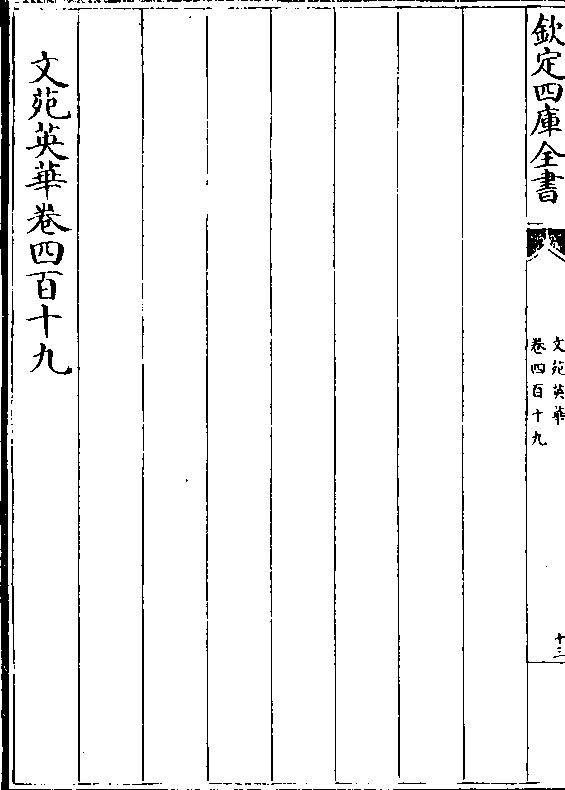 欽定四庫全書
文苑英華
卷四百十九
十三
文苑英華卷四百十九